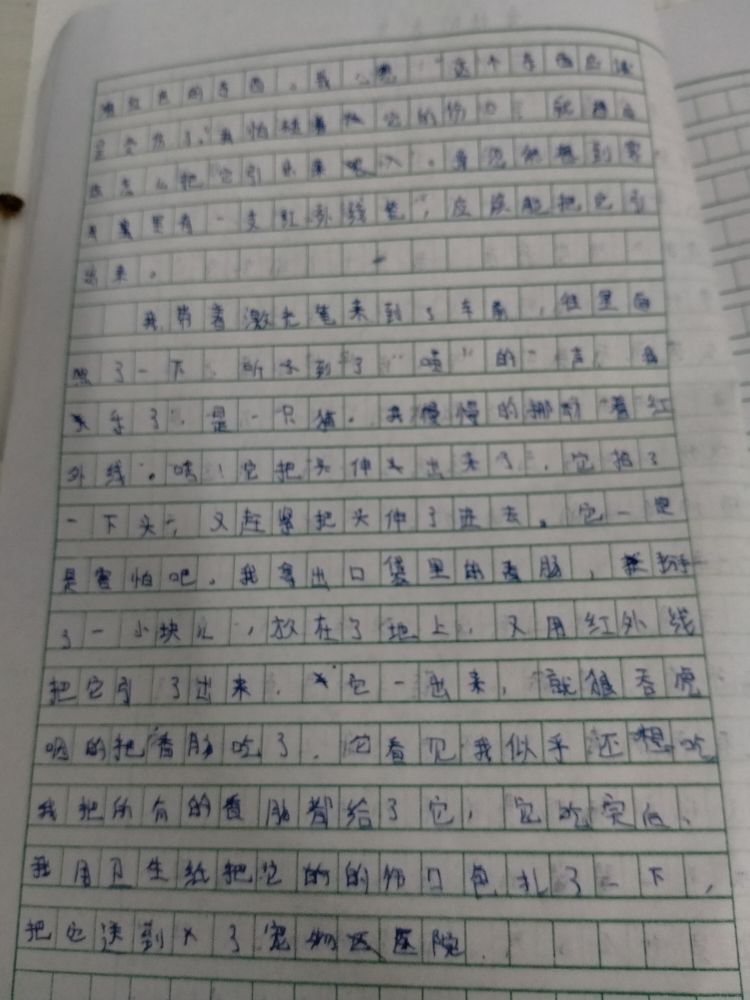 红色的东西。我心想："这个东西应该
是受伤了。"我怕 它的伤口，就想
该怎么把它引出来呢？ 想到
家里有一支红外线笔，应该能把它引
出来。
我带着激光笔来到了车前，往里面
照了一下，听到了"喵"的一声，我
乐了，是一只猫。我慢慢的挪动着红
外线。咦！它把头伸出来了，它抬了
一下头，又赶紧把头伸了进去。它一定
是害怕吧。我拿出口袋里的香肠，掰
了一小块儿，放在了地上，又用红外线
把它引了出来，它一出来，就狼吞虎
咽的把香肠吃了，它看见我似乎还想吃
我把所有的香肠都给了它，它吃完后、
我用卫生纸把它的伤口包扎了一下，
把它送到了宠物医院